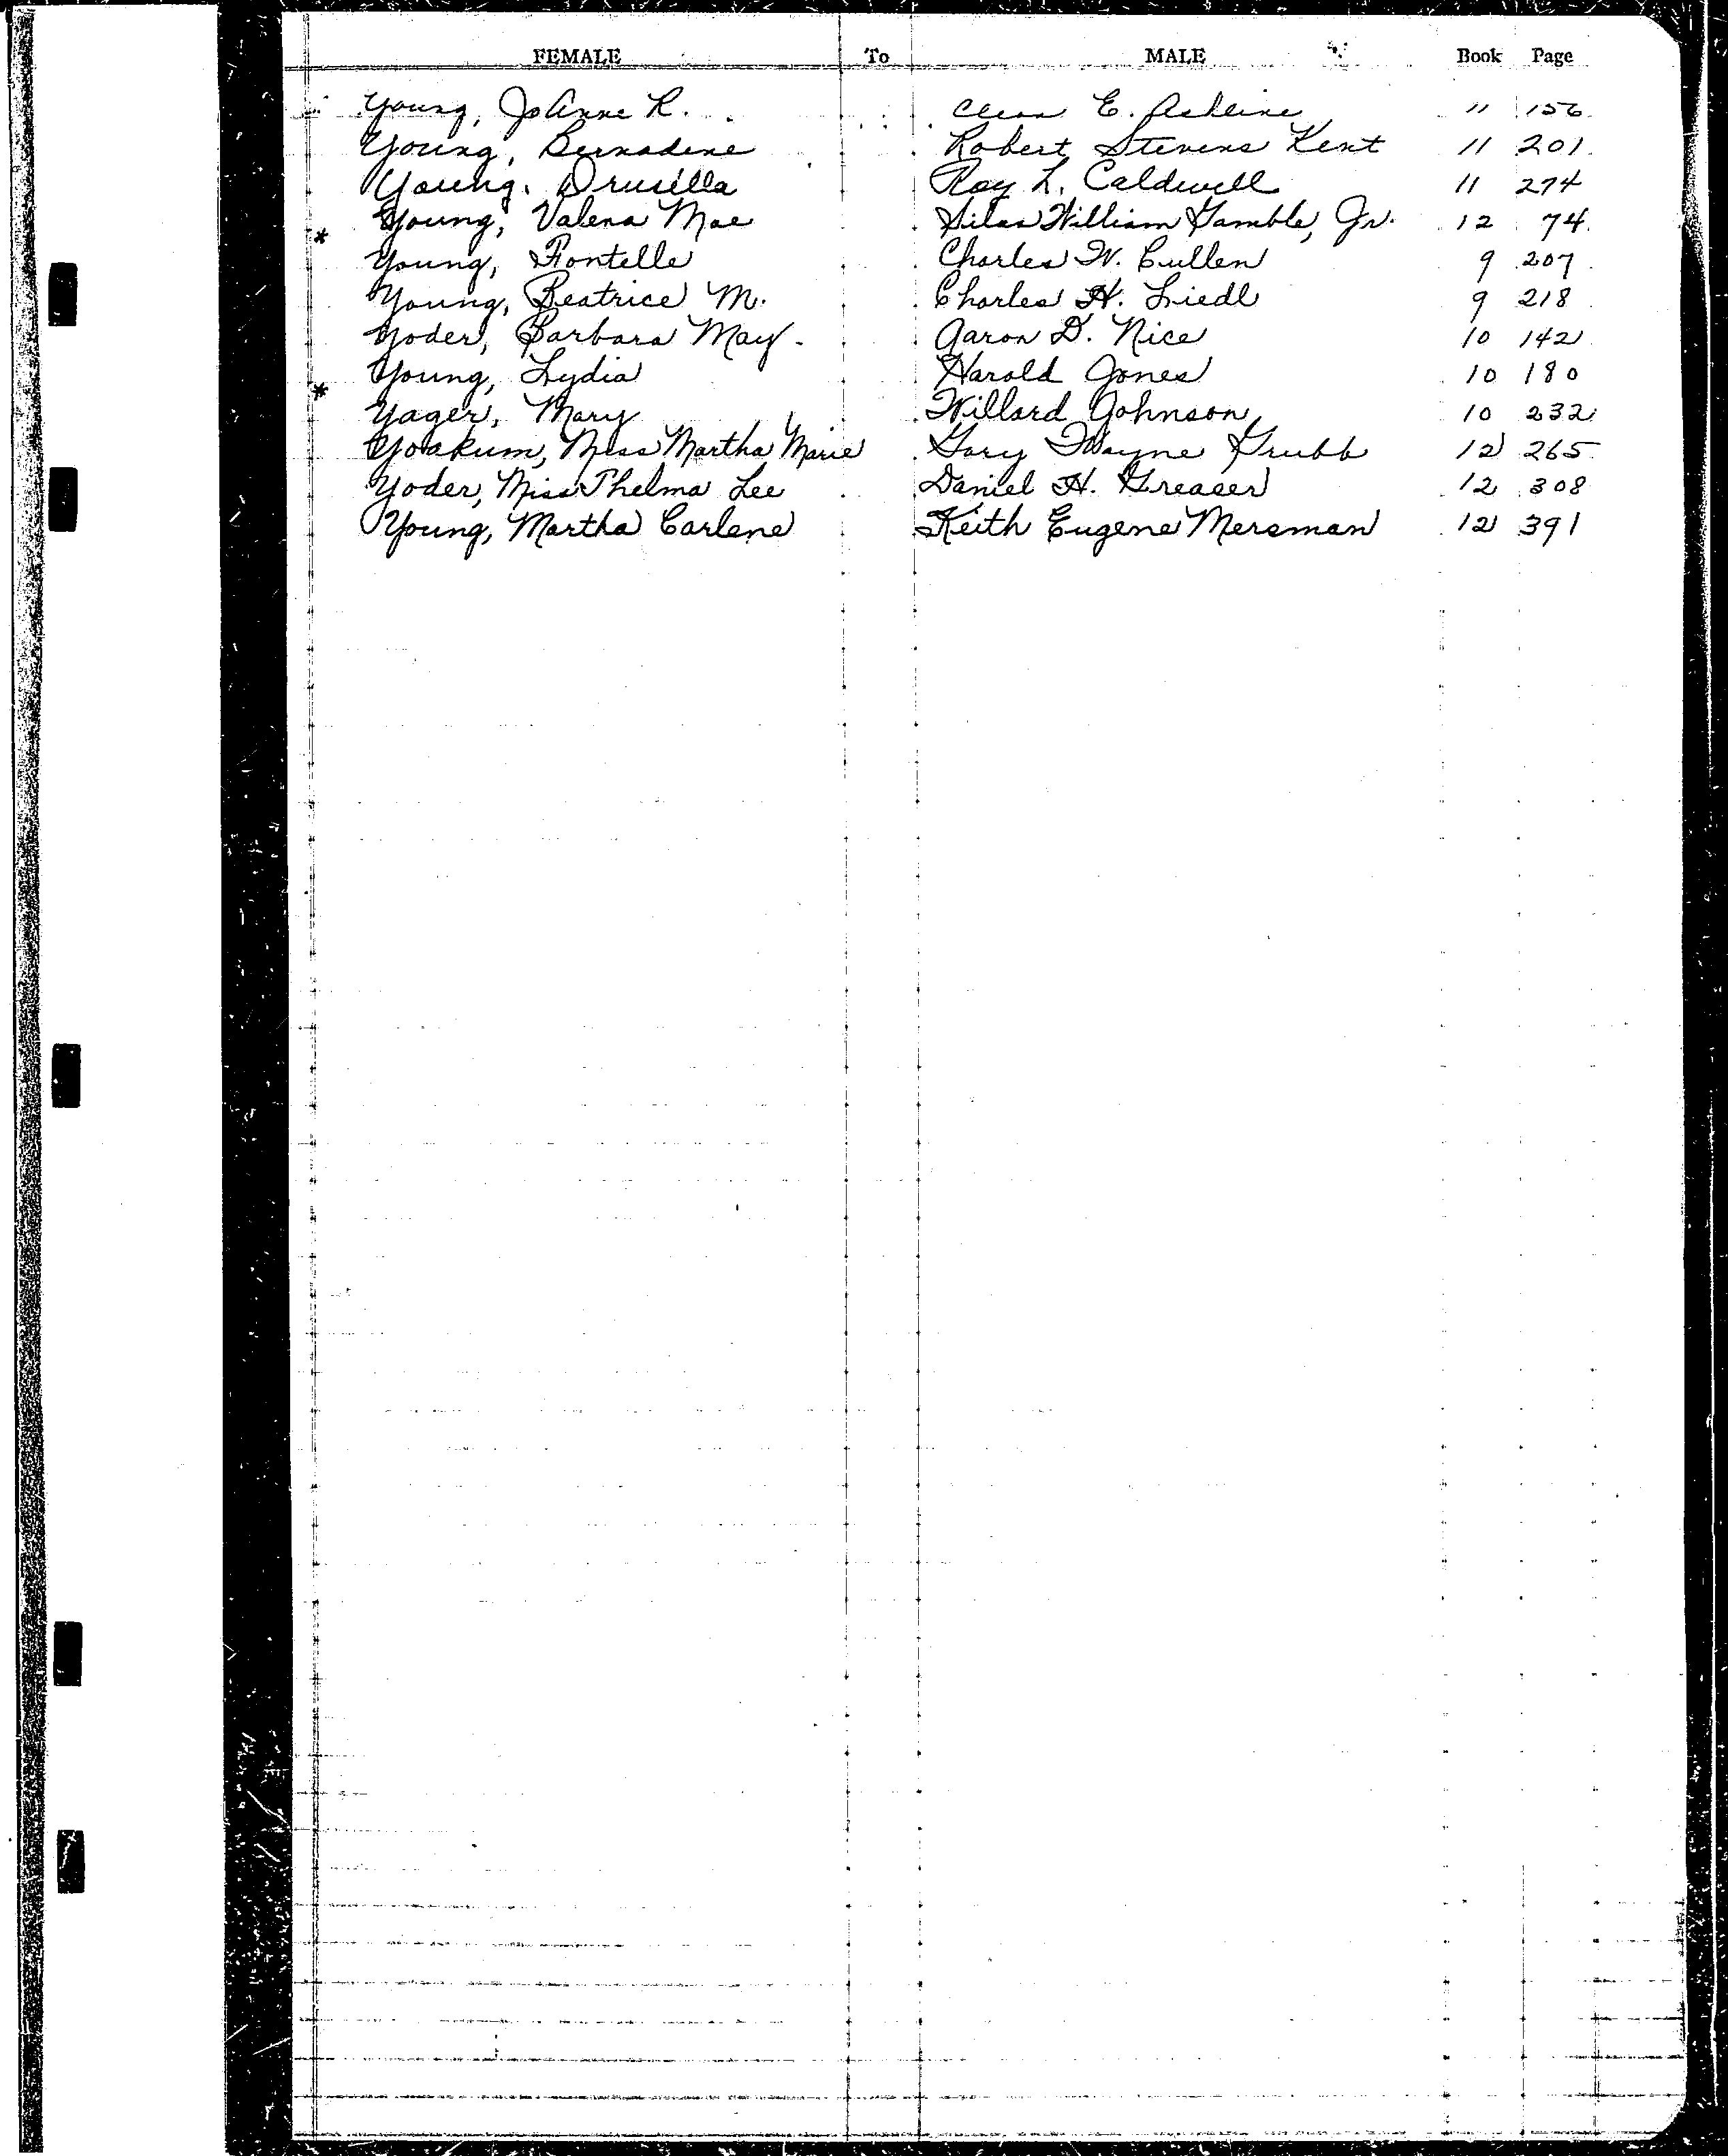 FEMALE To MALE Book Page
Young, JoAnne R. E. 11 156
Young, Bernadene Robert Stevens Kent 11 201
Young, Drusilla Roy L. Caldwell 11 274
Young, Valena Mae Silas William Gamble, Jr. 12 74
* Young, Fontelle Charles W. Cullen 9 207
Young, Beatrice M. Charles H. Liedl 9 218
Yoder, Barbara May Aaron D. Nice 10 142
Young, Lydia Harold Jones 10 180
* Yager, Mary Willard Johnson 10 232
Yoakum, Miss Martha Marie Gary Wayne Grubb 12 265
Yoder, Miss Thelma Lee Daniel H. Greaser 12 308
Young, Martha Carlene Keith Eugene Mersman 12 391